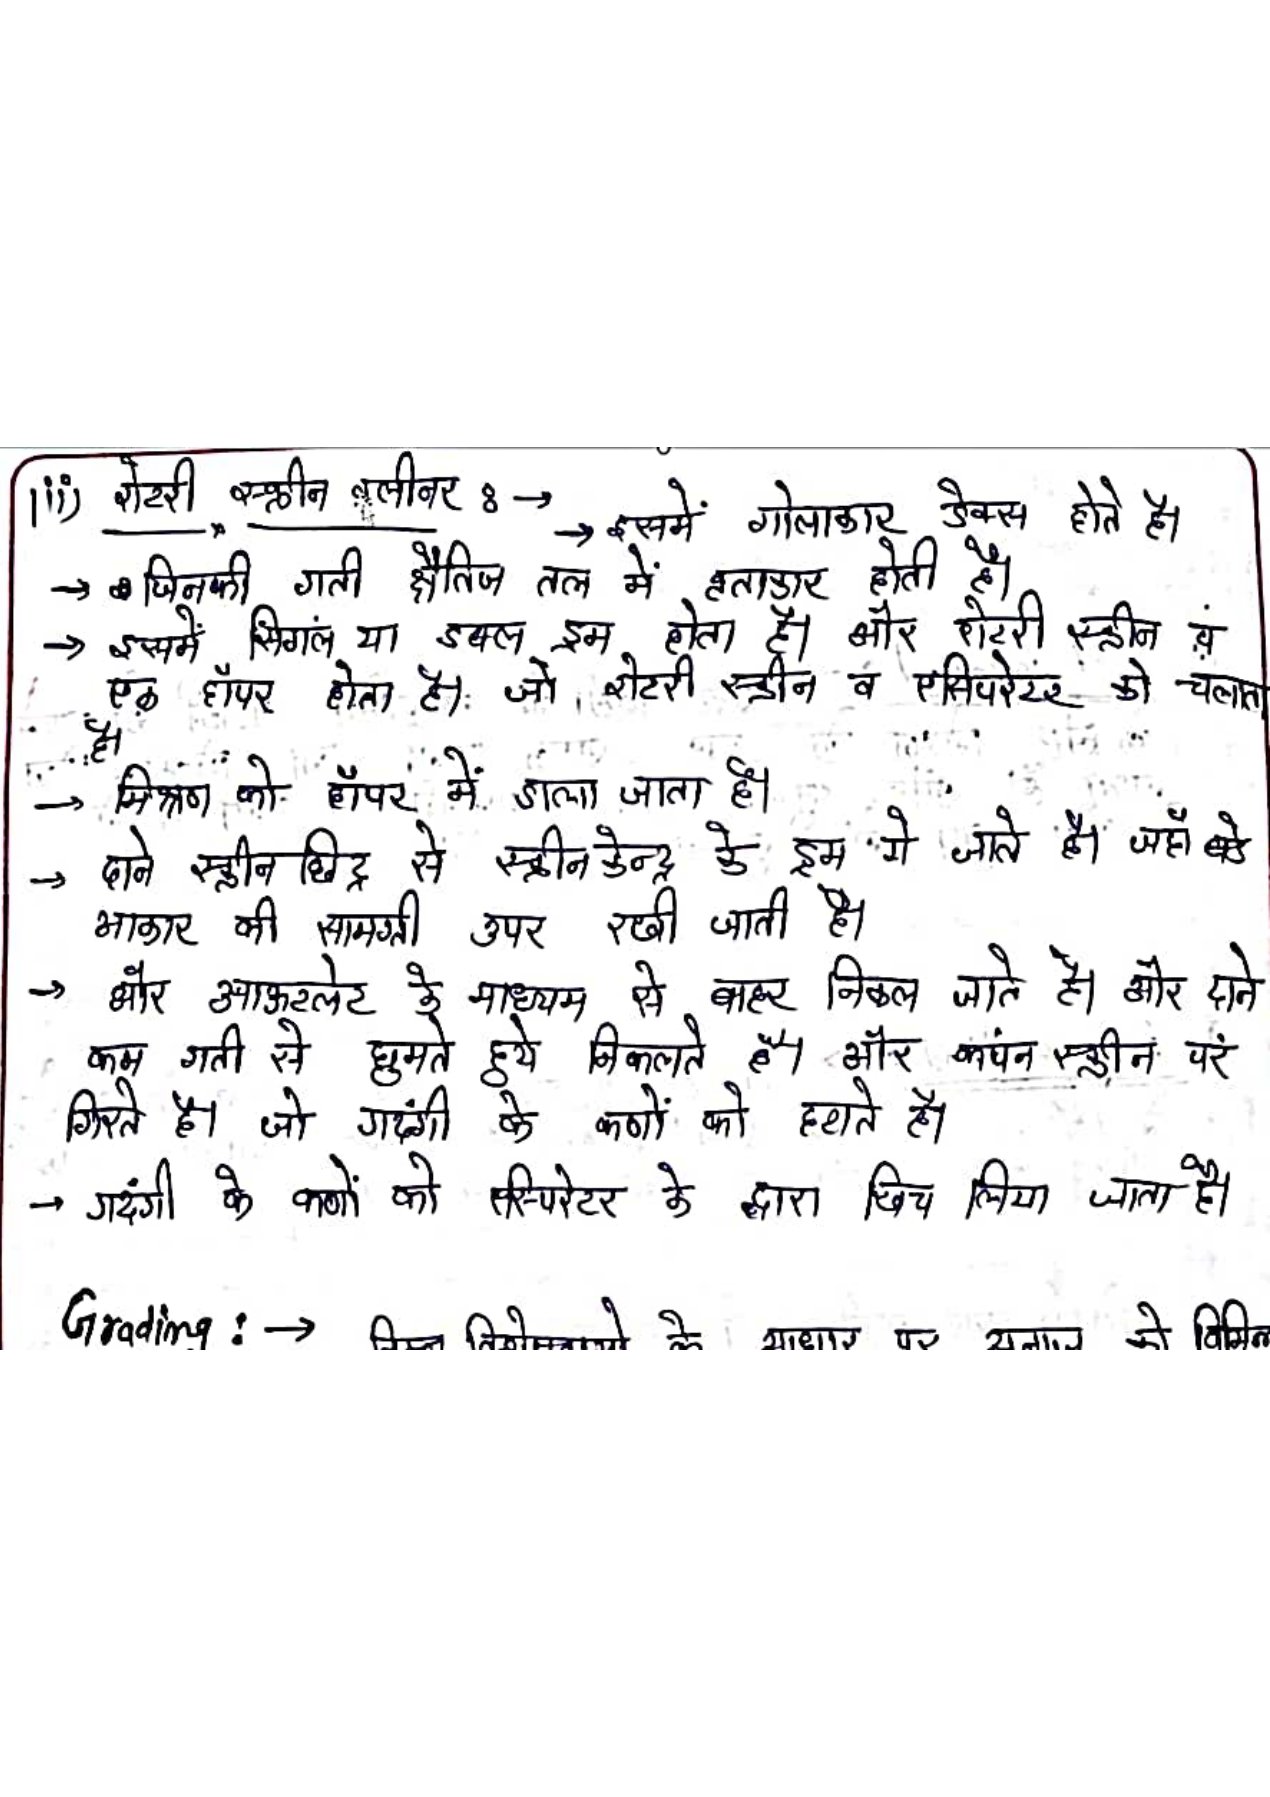 iii) रोटरी स्क्रीन क्लीनर :→
→ इसमें गोलाकार डेक्स होते है।
→ जिनकी गती क्षैतिज तल में व्रताकार होती है।
→ इसमें सिगंल या डबल ड्रम होता है। और रोटरी स्क्रीन व
एक हॉपर होता है। जो रोटरी स्क्रीन व एसिपरेटर को चलाता
है।
→ मिश्रण को हॉपर में डाला जाता है।
→ दाने स्क्रीन छिद्र से स्क्रीन केन्द्र के ड्रम मे जाते है। जहाँ बडे
आकार की सामग्री उपर रखी जाती है।
→ और आऊटलेट के माध्यम से बाहर निकल जाते है। और दाने
कम गती से घुमते हुये निकलते है। और कपंन स्क्रीन पर
गिरते है। जो गदंगी के कणों को हटाते है।
→ गदंगी के कणों को एस्पिरेटर के द्वारा खिच लिया जाता है।
Grading :→ के आधार पर अनाज को